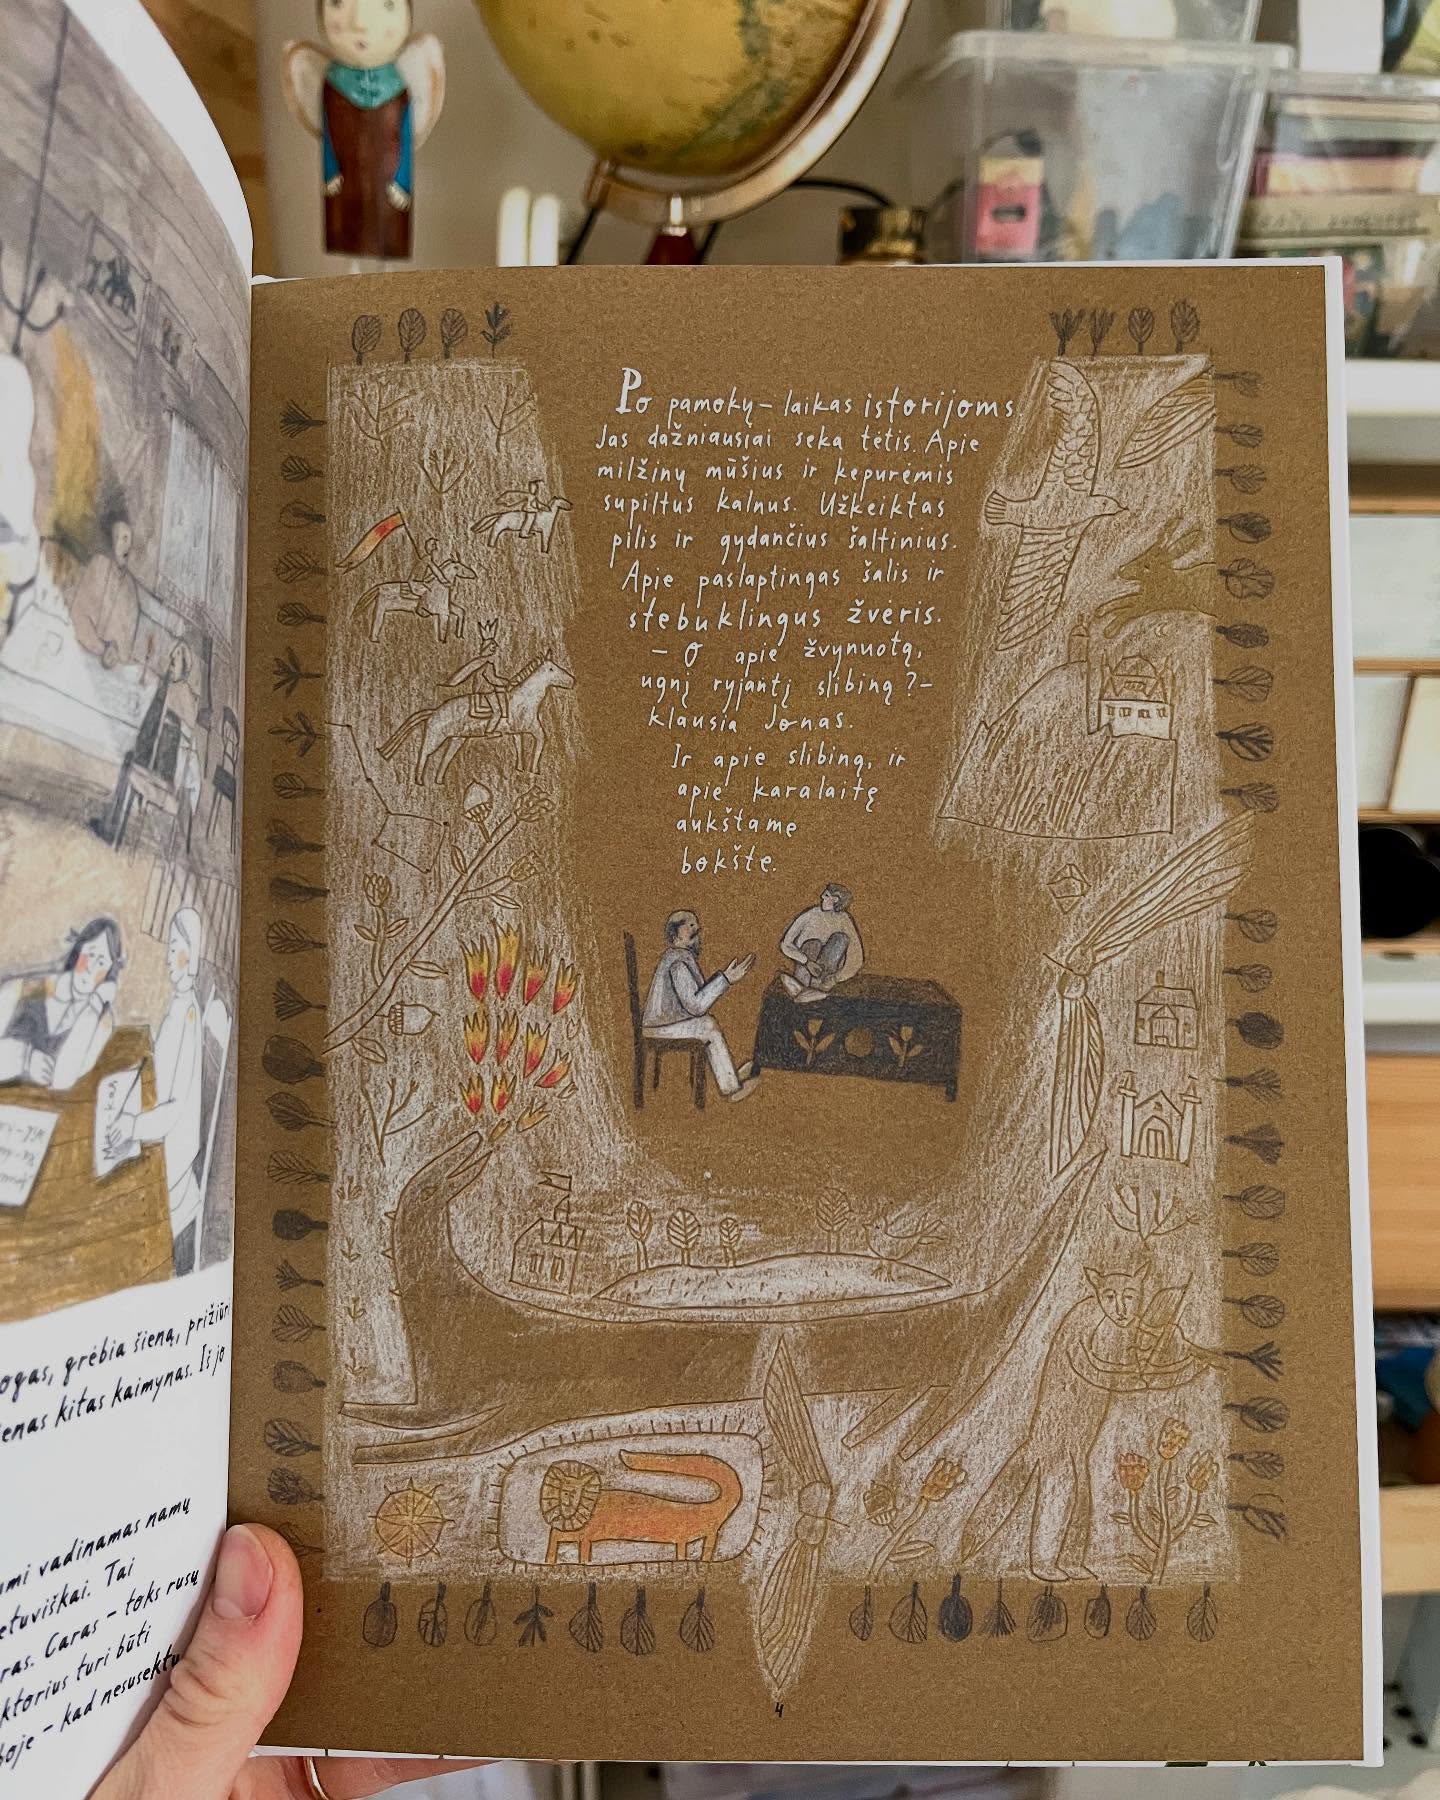 ogas, grėbia šieną, prižiūr
ienas kitas kaimynas. Iš jo
umi vadinamas namų
etuviškai. Tai
ras. Caras – toks rusų
ktorius turi būti
boje – kad nesusektų
Po pamokų – laikas istorijoms.
Jas dažniausiai seka tėtis. Apie
milžinų mūšius ir kepurėmis
supiltus kalnus. Užkeiktas
pilis ir gydančius šaltinius.
Apie paslaptingas šalis ir
stebuklingus žvėris.
– O apie žvynuotą,
ugnį ryjantį slibiną? –
klausia Jonas.
Ir apie slibiną, ir
apie karalaitę
aukštame
bokšte.
4